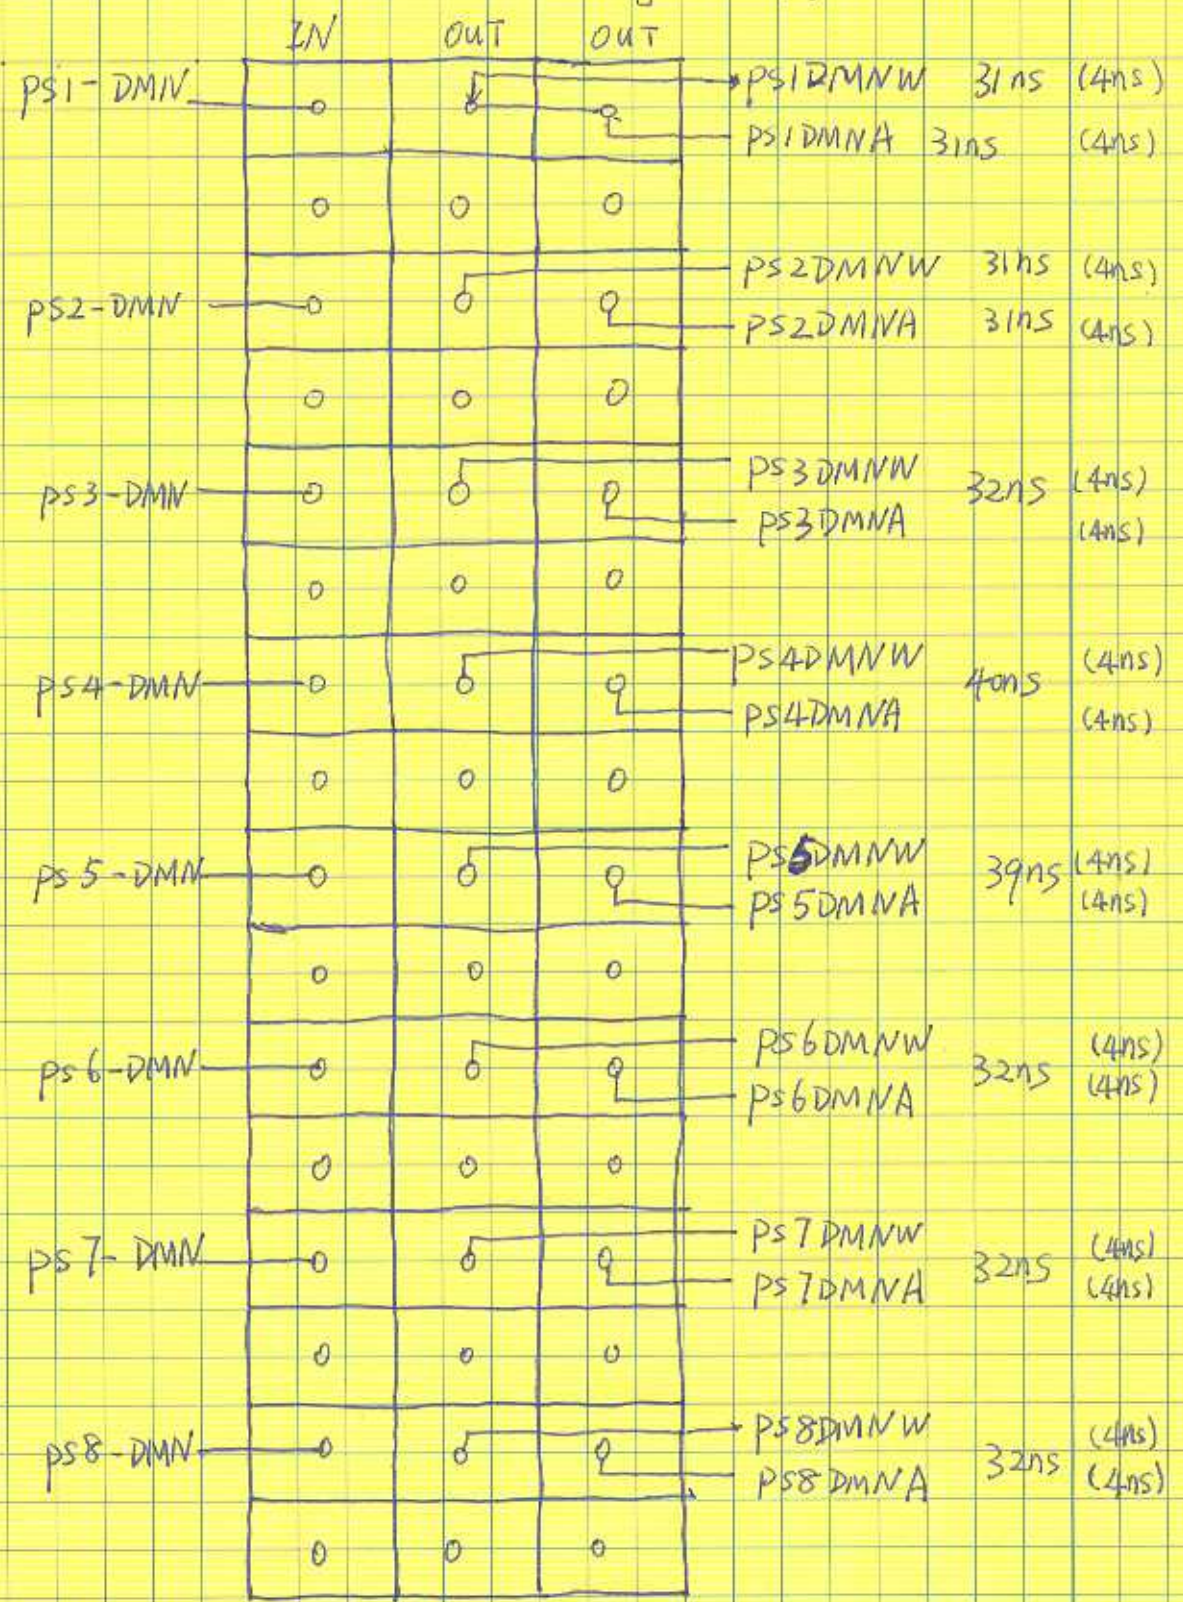 IN OUT OUT
PS1-DMN PS1DMNW 31ns (4ns)
PS1DMNA 31ns (4ns)
PS2-DMN PS2DMNW 31ns (4ns)
PS2DMNA 31ns (4ns)
PS3-DMN PS3DMNW 32ns (4ns)
PS3DMNA (4ns)
PS4-DMN PS4DMNW 40ns (4ns)
PS4DMNA (4ns)
PS5-DMN PS5DMNW 39ns (4ns)
PS5DMNA (4ns)
PS6-DMN PS6DMNW 32ns (4ns)
PS6DMNA (4ns)
PS7-DMN PS7DMNW 32ns (4ns)
PS7DMNA (4ns)
PS8-DMN PS8DMNW 32ns (4ns)
PS8DMNA (4ns)